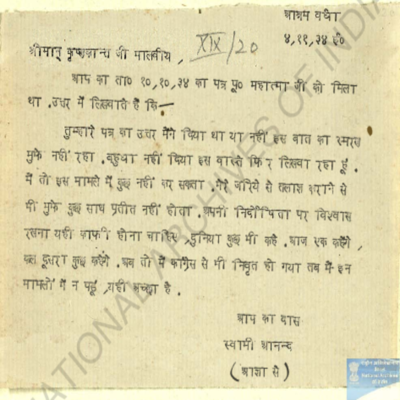 आश्रम वर्धा
४,११,३४ ई०
श्रीमान् कृष्णकान्त जी मालवीय,
XIX/20
आप का ता० १०,१०,३४ का पत्र पू० महात्मा जी को मिला
था. उत्तर में लिखवाते है कि—
तुम्हारे पत्र का उत्तर मैंने दिया था या नहीं इस बात का स्मरण
मुफे नहीं रहा. बहुधा नहीं दिया इस वास्ते फिर लिखवा रहा हूं.
मैं तो इस मामले में कुछ नहीं कर सकता. मेरे जरिये से तलाश कराने से
भी मुफे कुछ लाभ प्रतीत नहीं होता. अपनी निर्दोषिता पर विश्वास
रखना यही काफी होना चाहिए, दुनिया कुछ भी कहे. आज एक कहेंगे,
कल दूसरा कुछ कहेंगे. अब तो मैं कांग्रेस से भी निवृत हो गया तब मैं इन
मामलों में न पडूं, यही अच्छा है.
आप का दास
स्वामी आनन्द
(आज्ञा से)
NATIONAL ARCHIVES OF INDIA